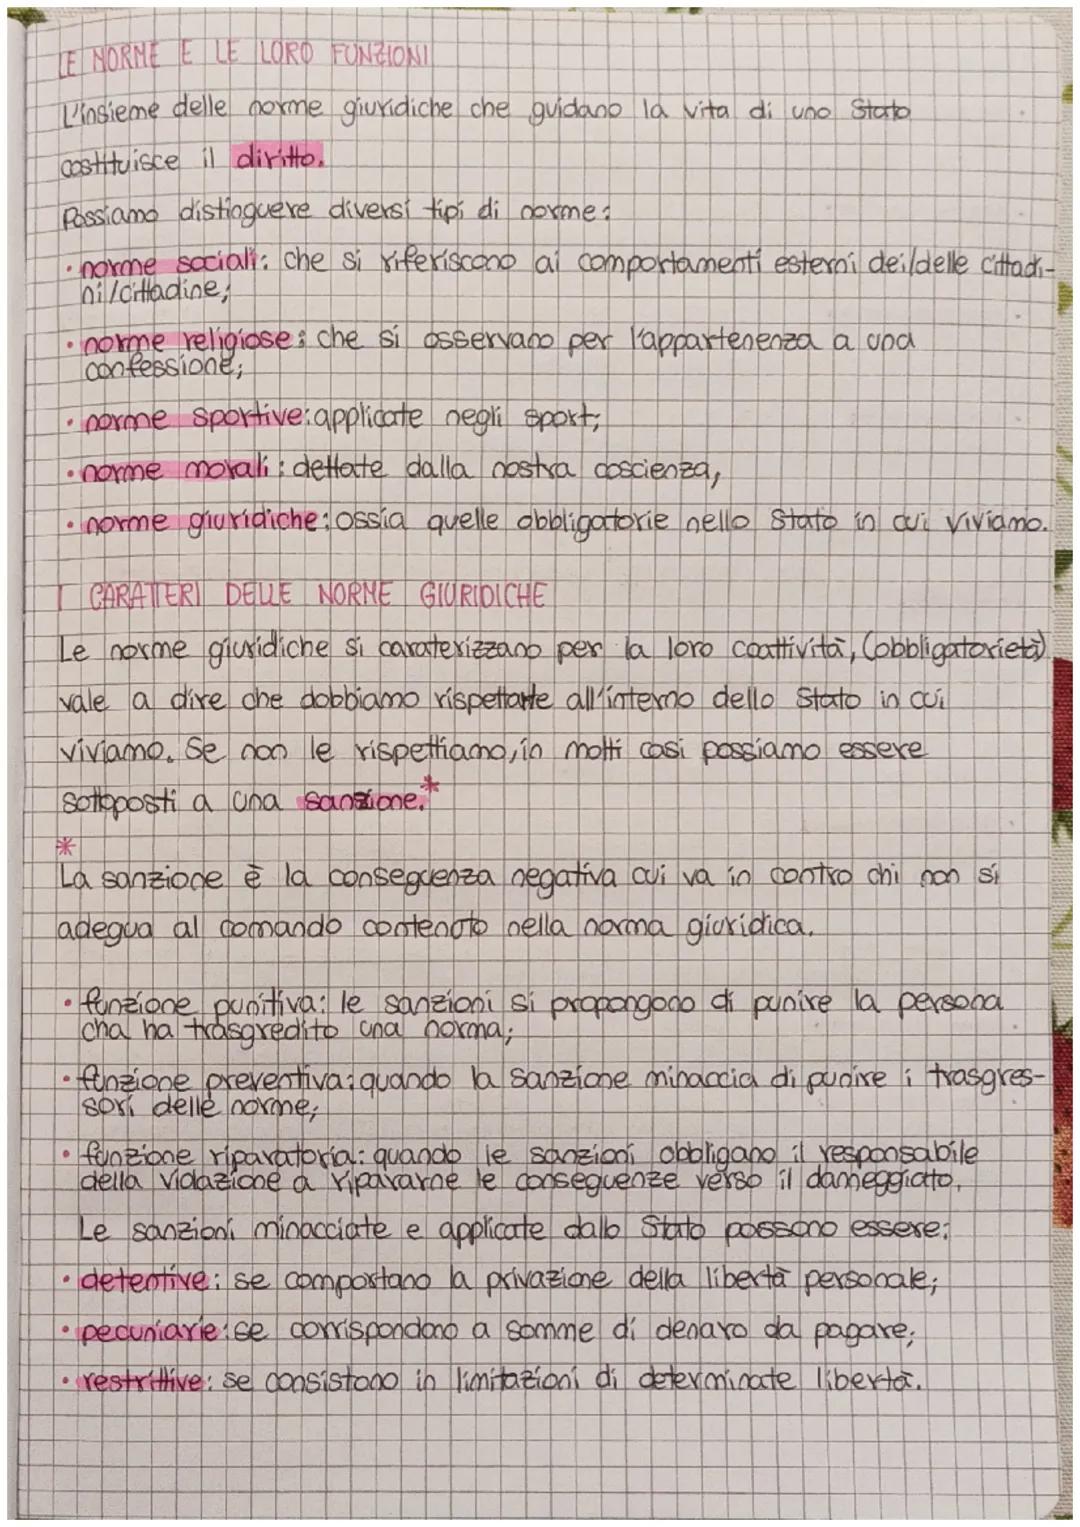 LE NORME E LE LORO FUNZIONI
L'insieme delle norme giuridiche che guidano la vita di uno Stato
costituisce il diritto.
Possiamo distinguere diversi tipi di norme:
• norme sociali: che si riferiscono ai comportamenti esterni dei/delle cittadi-
ni/cittadine;
• norme religiose: che si osservano per l'appartenenza a una
confessione;
• norme sportive: applicate negli sport;
• norme morali: dettate dalla nostra coscienza,
• norme giuridiche: ossia quelle obbligatorie nello Stato in cui viviamo.
I CARATTERI DELLE NORME GIURIDICHE
Le norme giuridiche si caraterizzano per la loro coattività, (obbligatorietà)
vale a dire che dobbiamo rispettarle all'interno dello Stato in cui
viviamo. Se non le rispettiamo, in molti casi possiamo essere
sottoposti a una sanzione.*
*
La sanzione è la conseguenza negativa cui va in contro chi non si
adegua al comando contenuto nella norma giuridica.
• funzione punitiva: le sanzioni si propongono di punire la persona
cha ha trasgredito una norma;
• funzione preventiva: quando la sanzione minaccia di punire i trasgres-
sori delle norme;
• funzione riparatoria: quando le sanzioni obbligano il responsabile
della violazione a ripararne le conseguenze verso il danneggiato.
Le sanzioni minacciate e applicate dallo Stato possono essere:
• detentive: se comportano la privazione della libertà personale;
• pecuniarie: se corrispondono a somme di denaro da pagare;
• restrittive: se consistono in limitazioni di determinate libertà.